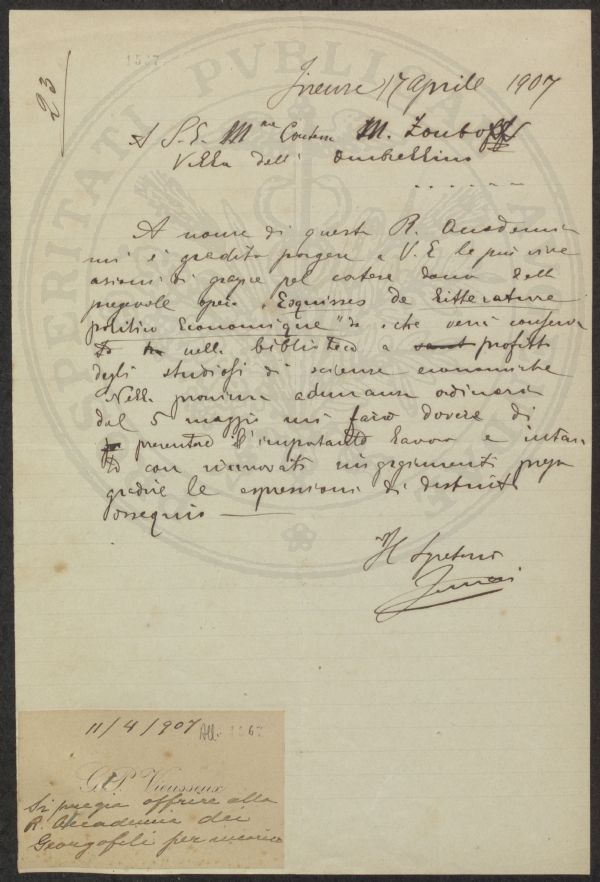 1567
23
Firenze 17 aprile 1907
A S. E. Mme Contessa M. Zouboff
Villa dell' Ombrellino
A nome di questa R. Accademia
mi è gradito porgere a V. E. le più vive
azioni di grazie pel cortese dono della
pregevole opera "Esquisses de litterature
politico economique" che verrà conserva
nella biblioteca a profitto
degli studiosi di scienze economiche
Nella prossima adunanza ordinaria
del 5 maggio mi farò dovere di
presentare l'importante lavoro e intan
to con rinnovati ringraziamenti prego
gradire le espressioni di distinto
ossequio
Il Segretario
11/4/907 All. 1567
G. P. Vieusseux
Si pregia offrire alla
R. Accademia dei
Georgofili per incarico
SPERITATI PVBLICA